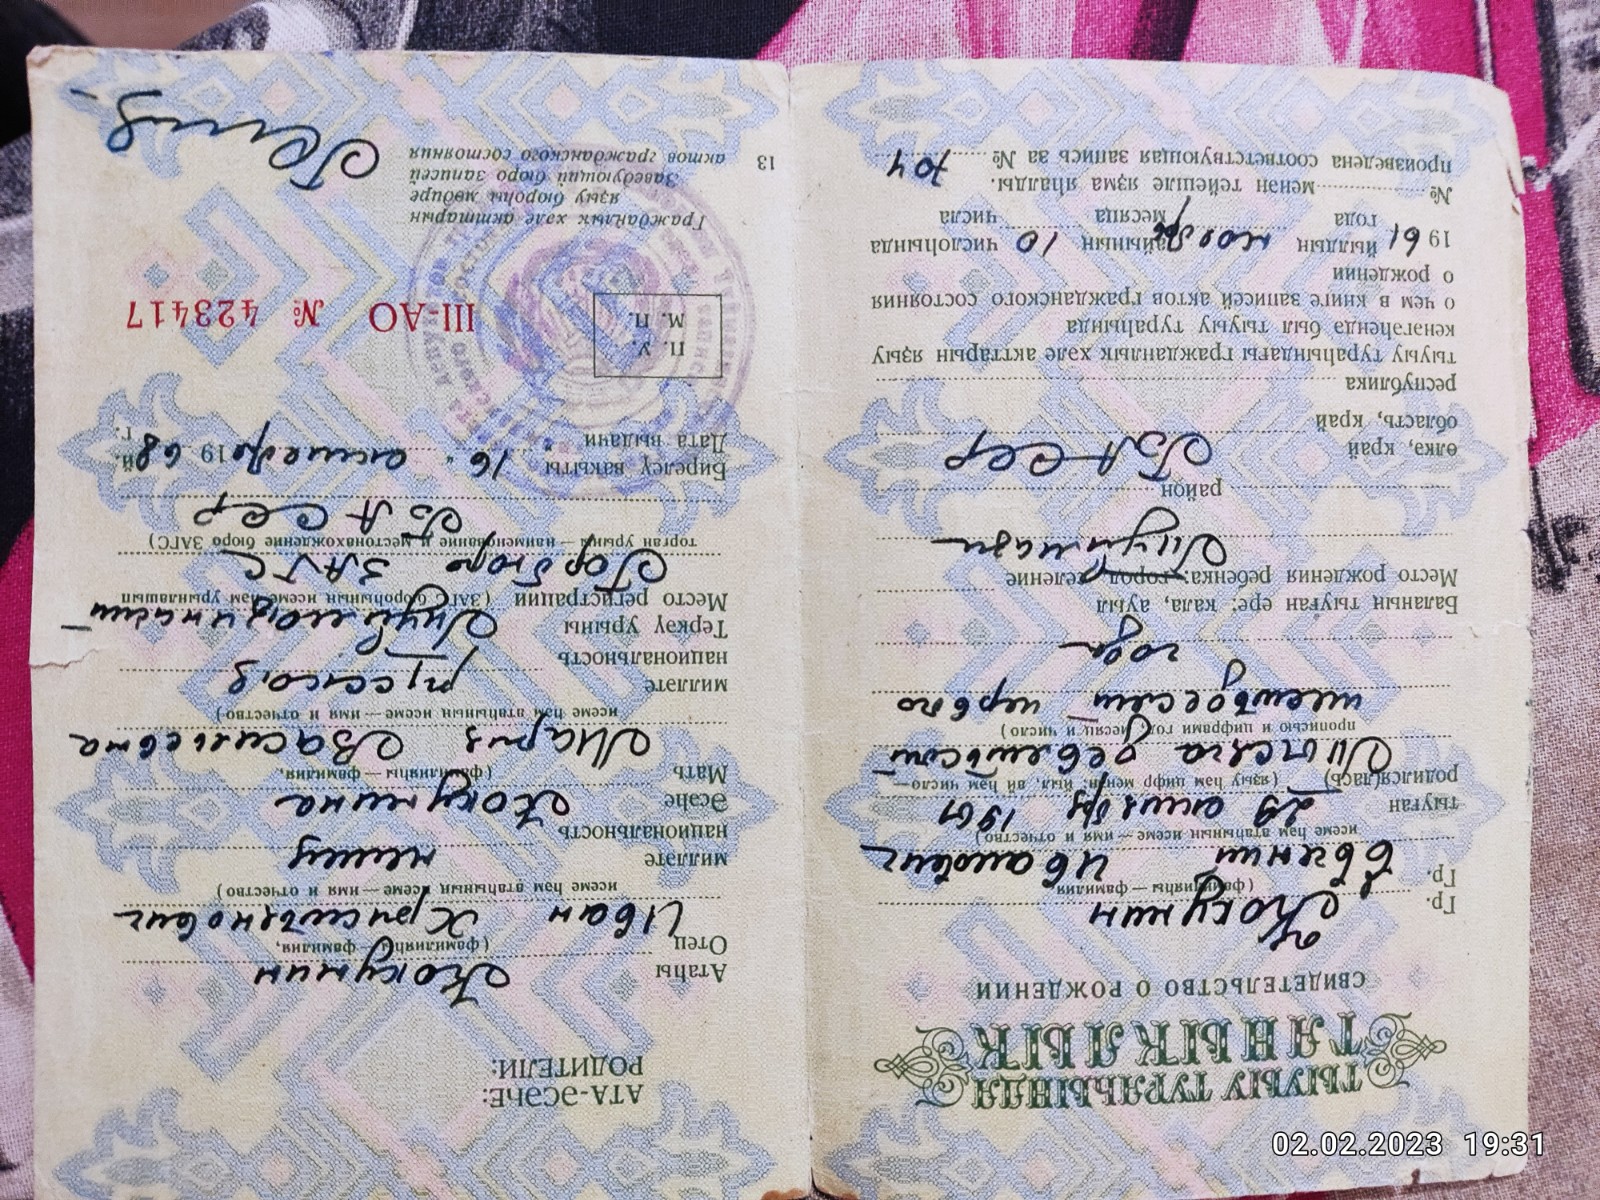 ТЫУЫУ ТУРАҺЫНДА
ТАНЫКЛЫК
СВИДЕТЕЛЬСТВО О РОЖДЕНИИ
Гр. Кокунин
(фамилияһы — фамилия)
Гр. Евгений Иванович
исеме һәм атаһының исеме — имя и отчество)
тыуған 29 октября 1961
родился(лась) (языу һәм цифр менән: йыл, ай һәм число —
прописью и цифрами год, месяц и число)
Тысяча девятьсот
шестьдесят первого
года
Баланың тыуған ере: кала, ауыл
Место рождения ребенка: город, селение
Туймазы
район
өлкә, край БАССР
область, край
республика
тыуыу тураһындағы гражданлык хәле акттарын языу
кенәгәһендә был тыуыу тураһында
о чем в книге записей актов гражданского состояния
о рождении
1961 йылдың ноябрь айының 10 числоһында
года месяца числа
№ менән тейешле язма яһалды.
произведена соответствующая запись за № 704
АТА-ӘСӘҺЕ:
РОДИТЕЛИ:
Атаһы Кокунин
Отец (фамилияһы — фамилия,
Иван Христьянович
исеме һәм атаһының исеме — имя и отчество)
милләте немец
национальность
Әсәһе Кокунина
Мать (фамилияһы — фамилия,
Мария Васильевна
исеме һәм атаһының исеме — имя и отчество)
милләте русская
национальность
Теркәү урыны Туймазинский
Место регистрации (ЗАГС бюроһының исеме һәм урынлашын
Гор бюро ЗАГС
торган урыны — наименование и местонахождение бюро ЗАГС)
БАССР
Бирелеү вакыты „16“ октября 1968 й.
Дата выдачи г.
П. У.
М. П.
III-АО № 423417
Гражданлык хәле акттарын
языу бюроһы мөдире
Заведующий бюро записей
актов гражданского состояния
13
02.02.2023 19:31